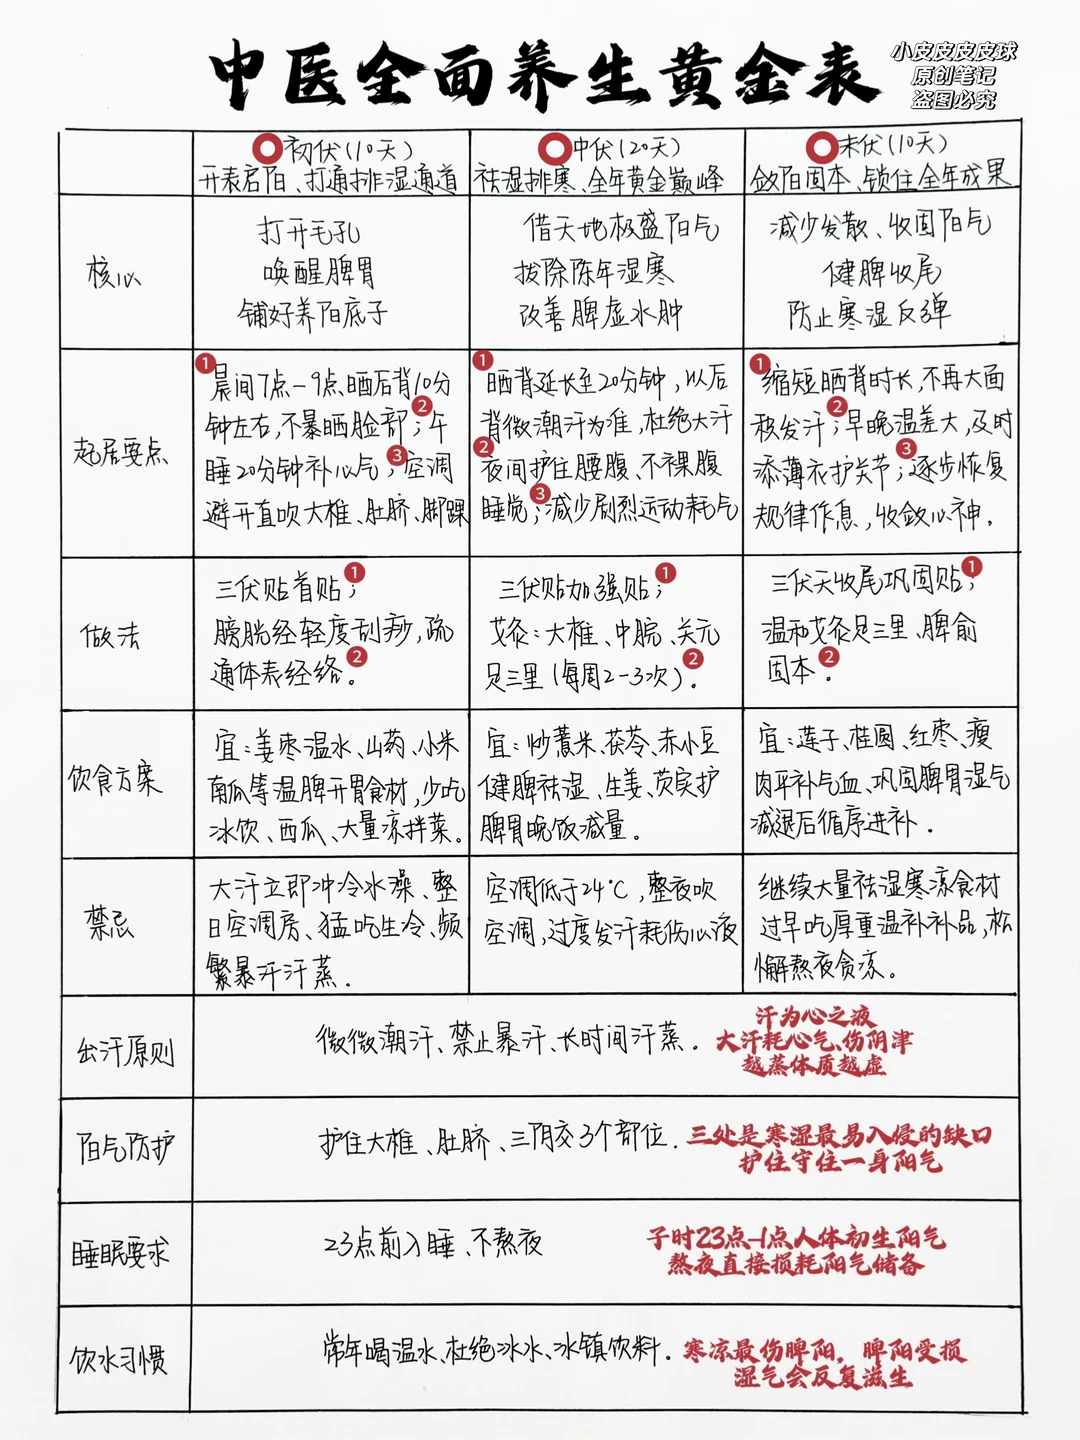 中医全面养生黄金表
小皮皮皮皮球
原创笔记
盗图必究
初伏(10天)
开表启阳、打通排湿通道
中伏(20天)
祛湿排寒、全年黄金巅峰
末伏(10天)
敛阳固本、锁住全年成果
核心
打开毛孔
唤醒脾胃
铺好养阳底子
借天地极盛阳气
拔除陈年湿寒
改善脾虚水肿
减少发散、收固阳气
健脾收尾
防止寒湿反弹
起居要点
1
晨间7点-9点晒后背10分
钟左右,不暴晒脸部;2午
睡20分钟补心气;3空调
避开直吹大椎、肚脐、脚踝
1
晒背延长至20分钟,以后
背微潮汗为准,杜绝大汗
2
夜间护住腰腹、不裸腹
睡觉;3减少剧烈运动耗气
1
缩短晒背时长,不再大面
积发汗;2早晚温差大,及时
添薄衣护关节;3逐步恢复
规律作息,收敛心神.
做法
三伏贴首贴;1
膀胱经轻度刮痧,疏
通体表经络。2
三伏贴加强贴;1
艾灸:大椎、中脘、关元
足三里(每周2-3次).2
三伏天收尾巩固贴;1
温和艾灸足三里、脾俞
固本.2
饮食方案
宜:姜枣温水、山药、小米
南瓜等温脾开胃食材,少吃
冰饮、西瓜、大量凉拌菜.
宜:炒薏米、茯苓、赤小豆
健脾祛湿、生姜、芡实护
脾胃晚饭减量.
宜:莲子、桂圆、红枣、瘦
肉平补气血、巩固脾胃湿气
减退后循序进补.
禁忌
大汗立即冲冷水澡、整
日空调房、猛吃生冷、频
繁暴汗汗蒸.
空调低于24℃,整夜吹
空调,过度发汗耗伤心液
继续大量祛湿寒凉食材
过早吃厚重温补补品,松
懈熬夜贪凉。
出汗原则
微微潮汗、禁止暴汗、长时间汗蒸.
汗为心之液
大汗耗心气、伤阴津
越蒸体质越虚
阳气防护
护住大椎、肚脐、三阴交3个部位.
三处是寒湿最易入侵的缺口
护住守住一身阳气
睡眠要求
23点前入睡、不熬夜
子时23点-1点人体初生阳气
熬夜直接损耗阳气储备
饮水习惯
常年喝温水、杜绝冰水、冰镇饮料.
寒凉最伤脾阳,脾阳受损
湿气会反复滋生